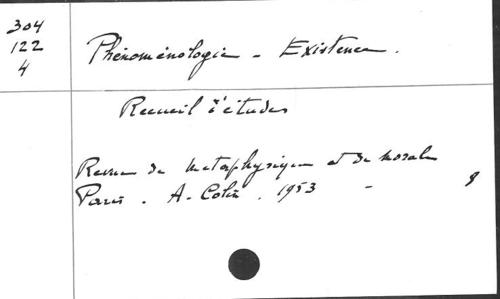 304
122
4
Phénoménologie - Existence.
Recueil d'études
Revue de métaphysique et de morale
Paris. A. Colin. 1953 -